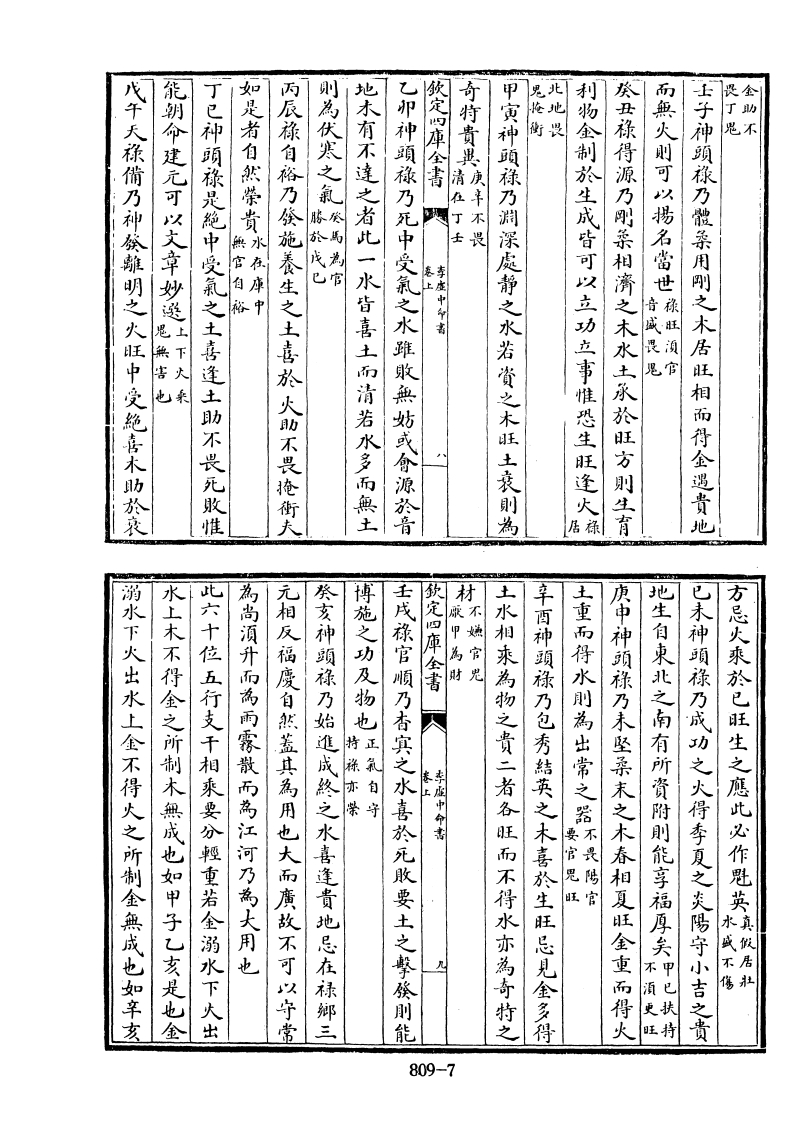 金助不
畏丁鬼
壬子神頭祿乃體柔用剛之木居旺相而得金遇貴地
而無火則可以揚名當世祿旺須官
音盛畏鬼
癸丑祿得源乃剛柔相濟之木水土承於旺方則生育
利物金制於生成皆可以立功立事惟恐生旺逢火祿
居
北地畏
鬼掩衝
甲寅神頭祿乃淵深處靜之水若資之木旺土衰則為
奇特貴異庚辛不畏
清在丁壬
欽定四庫全書
李虛中命書
卷上
八
乙卯神頭祿乃死中受氣之水雖敗無妨或會源於音
地木有不達之者此一水皆喜土而清若水多而無土
則為伏寒之氣癸馬為官
勝於戊己
丙辰祿自裕乃發施養生之土喜於火助不畏掩衝夫
如是者自然榮貴水在庫中
無官自裕
丁巳神頭祿是絶中受氣之土喜逢土助不畏死敗惟
能朝命建元可以文章妙選上下火乘
鬼無害也
戊午天祿備乃神發離明之火旺中受絶喜木助於衰
方忌火乘於巳旺生之應此必作魁英真假居壯
水盛不傷
己未神頭祿乃成功之火得季夏之炎陽守小吉之貴
地生自東北之南有所資附則能享福厚矣甲己扶持
不須更旺
庚申神頭祿乃未堅柔末之木春相夏旺金重而得火
土重而得水則為出常之器不畏陽官
要官鬼旺
辛酉神頭祿乃包秀結英之木喜於生旺忌見金多得
土水相乘為物之貴二者各旺而不得水亦為奇特之
材不嫌官鬼
厭甲為財
欽定四庫全書
李虛中命書
卷上
九
壬戌祿官順乃杳冥之水喜於死敗要土之擊發則能
博施之功及物也正氣自守
持祿亦榮
癸亥神頭祿乃始進成終之水喜逢貴地忌在祿鄉三
元相反福慶自然蓋其為用也大而廣故不可以守常
為尚須升而為雨霧散而為江河乃為大用也
此六十位五行支干相乘要分輕重若金溺水下火出
水上木不得金之所制木無成也如甲子乙亥是也金
溺水下火出水上金不得火之所制金無成也如辛亥
809-7